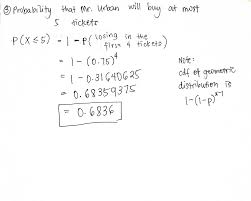 ③ Probability that Mr. Urban will buy at most
5 tickets
P(X≤5) = 1 - P(losing in the
first 4 tickets)
= 1 - (0.75)^4
= 1 - 0.31640625
= 0.68359375
= 0.6836
Note:
cdf of geometric
distribution is
1-(1-p)^x-1